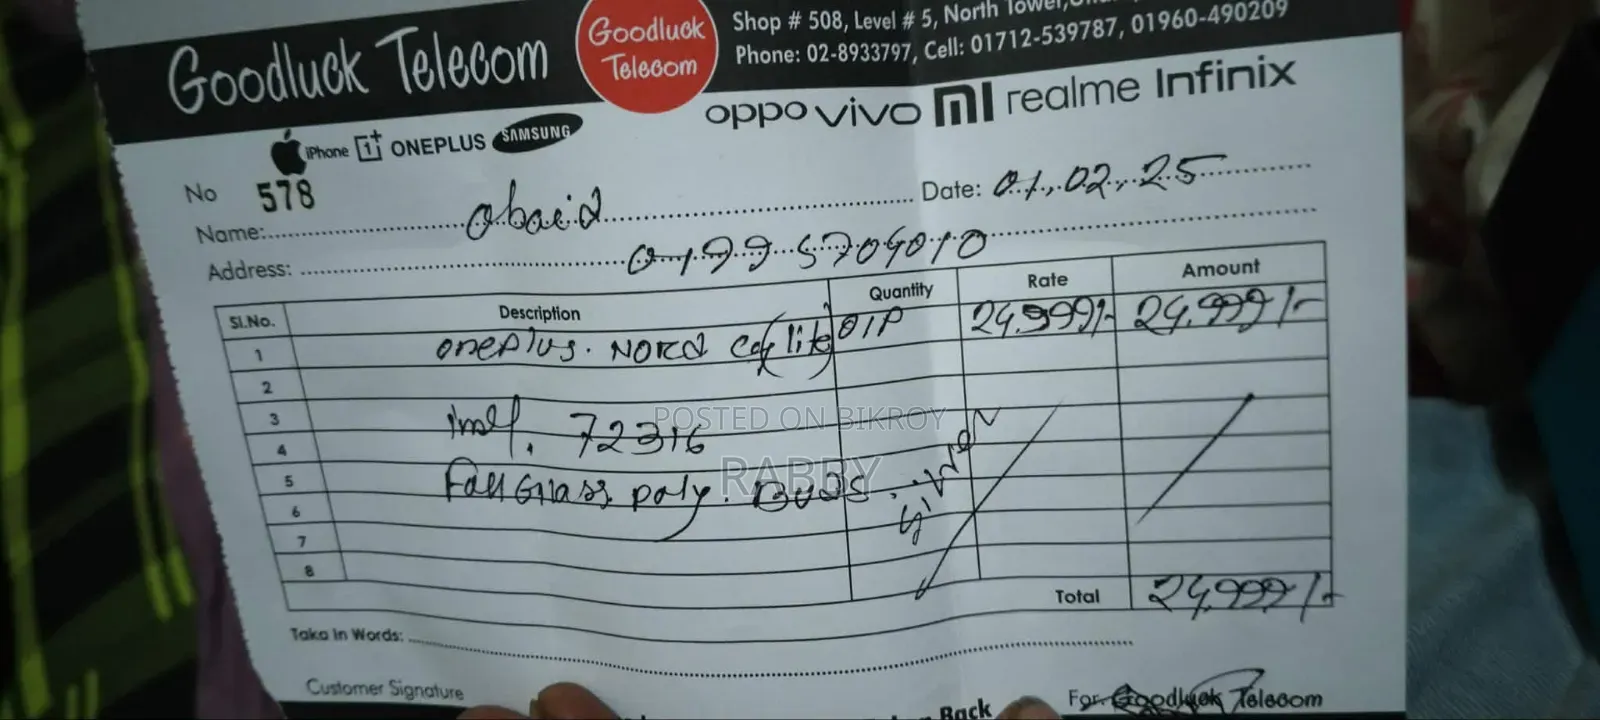 Goodluck Telecom
Goodluck Telecom
Shop # 508, Level # 5, North Tower,
Phone: 02-8933797, Cell: 01712-539787, 01960-490209
iPhone 1+ ONEPLUS SAMSUNG
oppo vivo MI realme Infinix
No 578
Date: 01.02.25
Name: Obaid
Address: 01995709010
Sl.No. Description Quantity Rate Amount
1 OnePlus. Nord (lite) 01P 24,999/- 24,999/-
2
3
4 72316
5 poly. Buds. given
6
7
8
Total 24,999/-
Taka In Words:
Customer Signature
For Goodluck Telecom
Back
POSTED ON BIKROY
RABBY